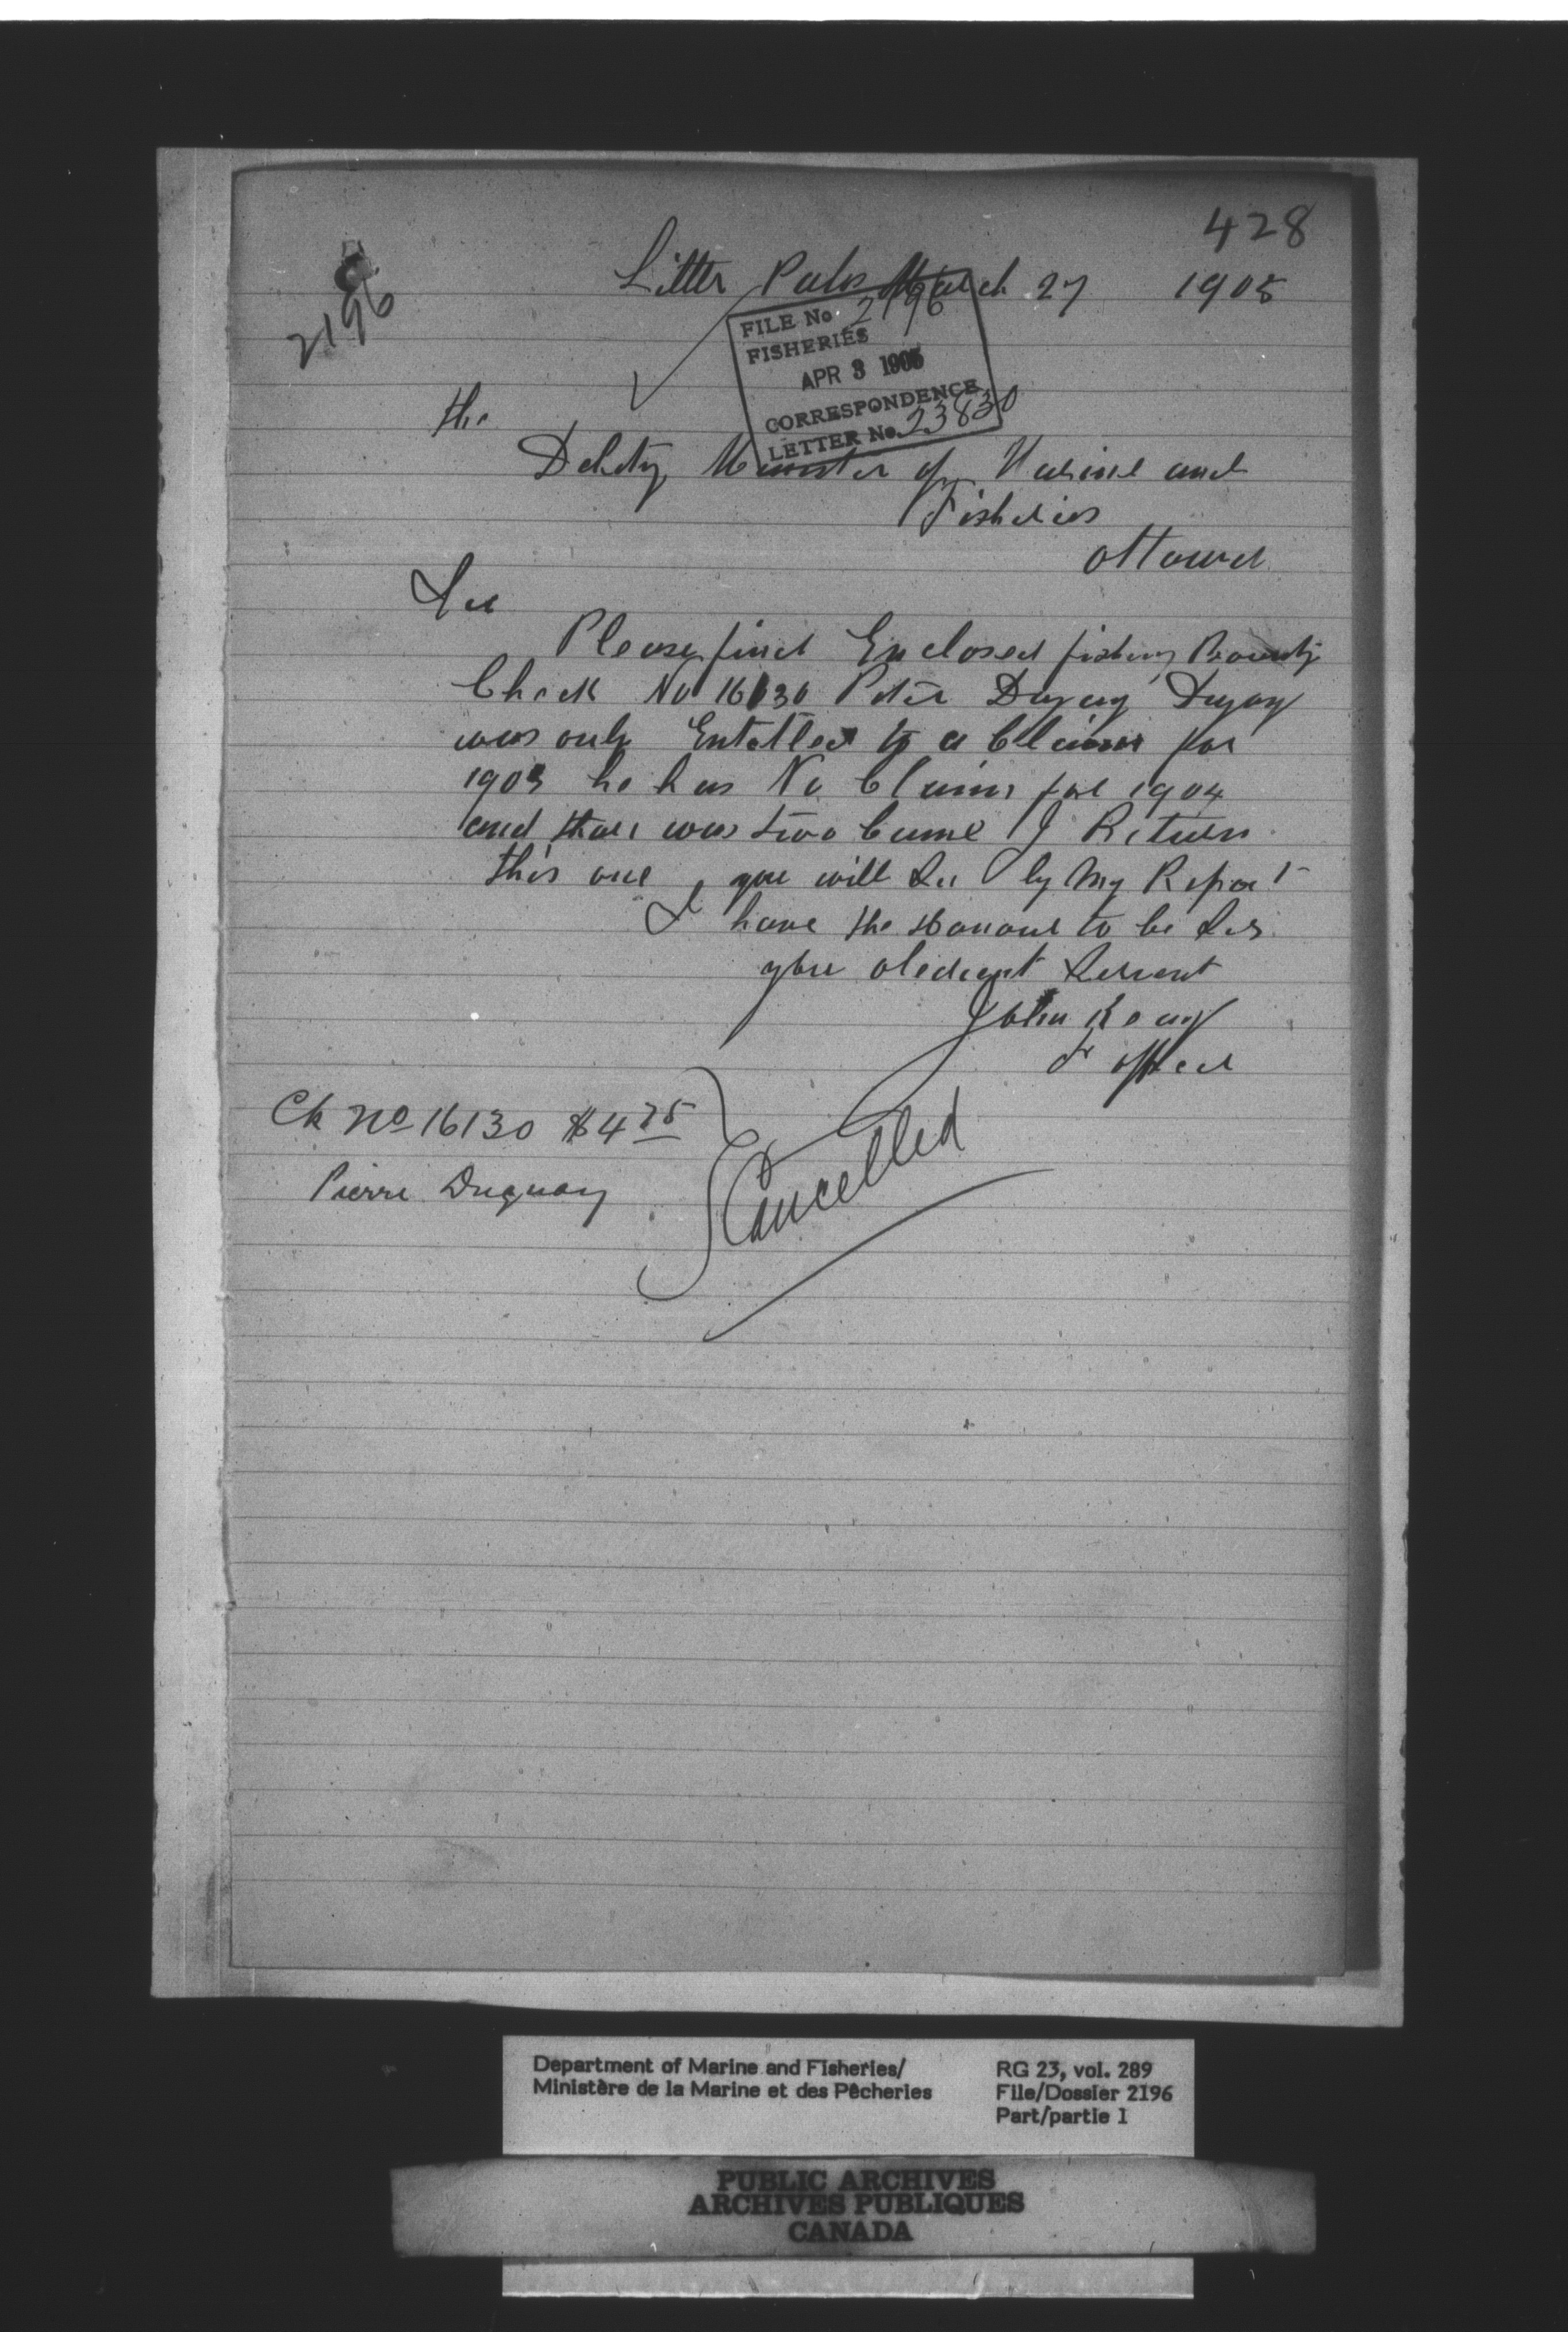 428
2196
Litter Pabos March 27 1905
FILE No. 2196
FISHERIES
APR 3 1905
CORRESPONDENCE
LETTER No. 23830
the
Debity Minister of Marine and
Fisheries
ottawa
Sir
Please find Enclosed fishing Bounty
Check No 16130 Peter Duguy Duguy
was only Entitled to a Claim for
1903 he has No Claim for 1904
and thare was two came I Return
this one you will See by My Report
I have the Honour to be Sir
your obedient Servent
John Keay
F officer
Ck No 16130 $4 75
Pierre Duguay
Cancelled
Department of Marine and Fisheries/
Ministère de la Marine et des Pêcheries
RG 23, vol. 289
File/Dossier 2196
Part/partie 1
PUBLIC ARCHIVES
ARCHIVES PUBLIQUES
CANADA